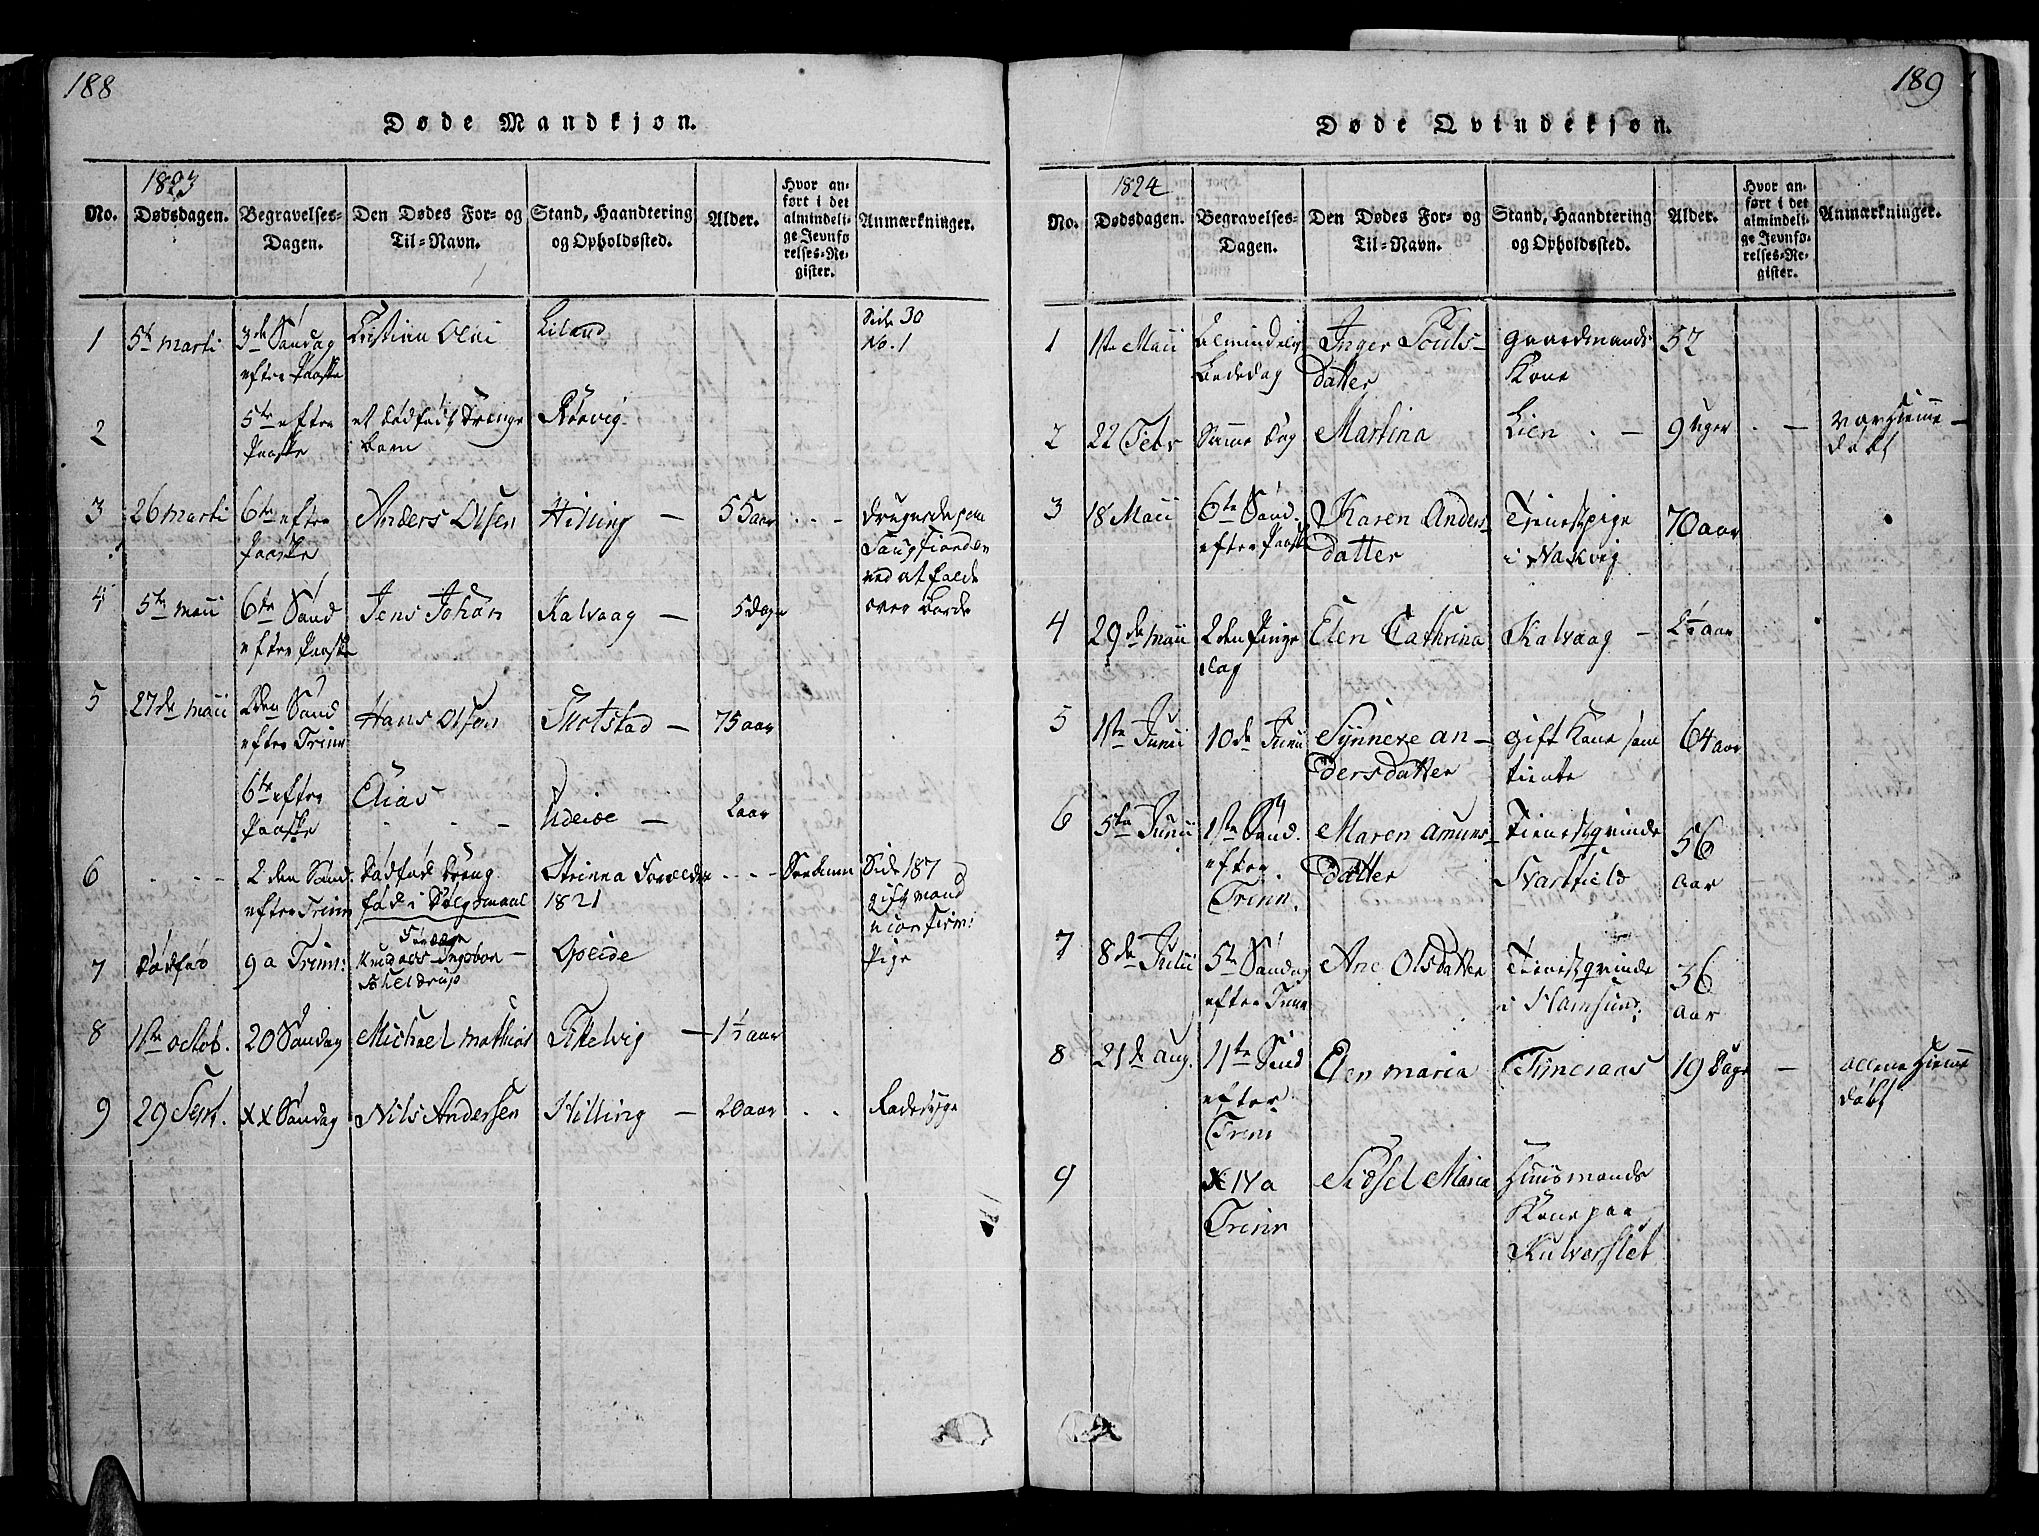 188
Døde Mandkjøn.
1823
No.
Dødsdagen.
Begravelses-
Dagen.
Den Dødes For- og
Til-Navn.
Stand, Haandtering
og Opholdssted.
Alder.
Hvor an-
ført i det
almindeli-
ge Jevnfø-
relses-Re-
gister.
Anmærkninger.
1
5te Marti
3de Søndag
efter Paaske
Kristian Olai
Liland
Side 30
No. 1
2
5te efter
Paaske
et dødfødt Drenge
barn
Rørvig
3
26 Marti
6te efter
Paaske
Anders Olsen
Hilling
55 aar
ved at falde
over Borde
4
5te Maii
6te Sønd
efter Paaske
Jens Johan
Kalvaag
5 dage
5
27de Maii
2den Sønd
efter Trinn
Hans Olsen
75 aar
6te efter
Paaske
Elias
2 aar
6
2den Sønd.
efter Trinn
dødfød Dreng
fød i Dølgsmaal
1821
Side 187
gift mand
uconfirm:
Pige
7
dødfød
9 a Trinn:
8
1ste octob.
20 Søndag
Michael Mathias
1½ aar
9
29 Sept.
XX Søndag
Nils Andersen
Hilling
20 aar
Radesyge
189
Døde Qvindekjøn.
1824
No.
Dødsdagen.
Begravelses-
Dagen.
Den Dødes For- og
Til-Navn.
Stand, Haandtering
og Opholdssted.
Alder.
Hvor an-
ført i det
almindeli-
ge Jevnfø-
relses-Re-
gister.
Anmærkninger.
1
1ste Maii
Almindelig
Bededag
Inger Pouls-
datter
Gaardmands
Kone
52
2
22 Febr
Samme Dag
Martina
Lien
9 uger
var hjemme-
døbt
3
18 Maii
6te Sønd.
efter Paaske
Karen Anders-
datter
Tienestpige
i Naxvig
70 aar
4
29de Maii
2den Pinge
dag
Elen Cathrina
Kalvaag
2½ aar
5
1ste Junii
10de Junii
Synneve An-
dersdatter
gift Kone som
tiente
64 aar
6
5te Junii
1ste Sønd.
efter
Trinn.
Maren Amuns-
datter
Tienestqvinde
Svartfield
56
aar
7
8de Julii
5te Søndag
efter Trinn
Ane Olsdatter
Tienestqvinde
i Hamsund
36
aar
8
21de Aug.
11te Sønd
efter
Trini
Elen Maria
Timeraas
19 Dage
allene Hiemme
døbt
9
XIV a
Trinn
Sidsel Maria
Huusmands
Kone paa
Kulverslet